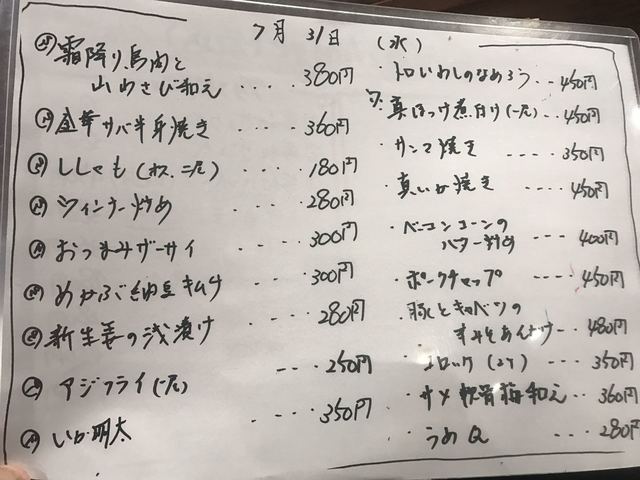 7月 31日 (水)
霜降り鳥肉と
山わさび和え ···· 380円
金華サバ半身焼き ···· 360円
ししゃも(オス、二尾) ··· 180円
ウィンナー炒め ···· 280円
おつまみザーサイ ···· 300円
めかぶ納豆キムチ ··· 300円
新生姜の浅漬け ···· 280円
アジフライ(一尾) ··· 250円
いか明太 ···· 350円
・トロいわしのなめろう ·· 450円
・真ほっけ煮付け(一尾) ·· 450円
・サンマ焼き ---- 350円
・真いか焼き ---- 450円
・ベーコンコーンの
バター炒め --- 400円
・ポークチャップ ---- 450円
・豚とキャベツの
すみそあんかけ -- 480円
・コロッケ(2ケ) ---- 350円
・サメ軟骨梅和え -- 360円
・うめQ --- 280円